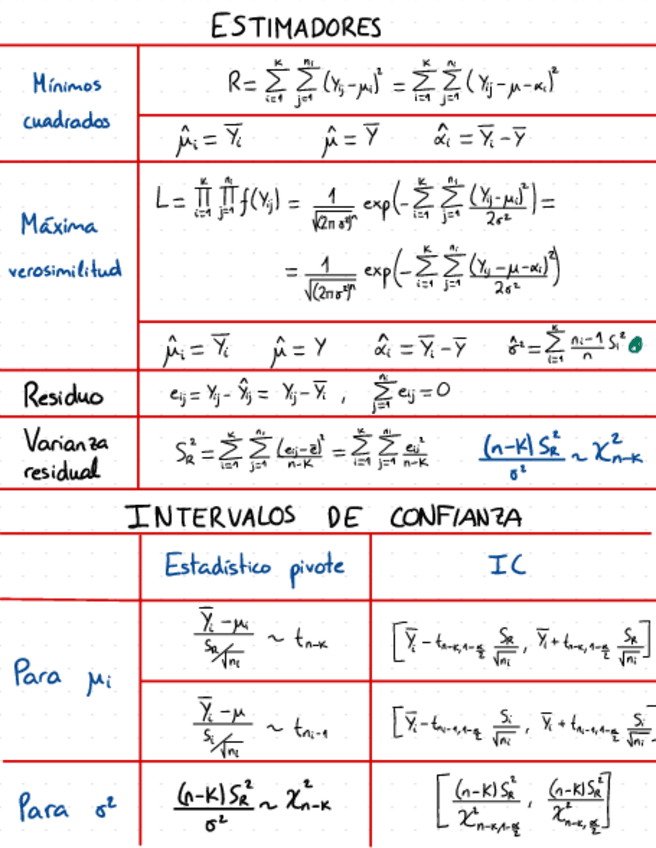 ESTIMADORES
Mínimos cuadrados
R = Σ_{i=1}^{K} Σ_{j=1}^{n_i} (Y_{ij} - μ_i)² = Σ_{i=1}^{K} Σ_{j=1}^{n_i} (Y_{ij} - μ - α_i)²
μ̂_i = Ȳ_i   μ̂ = Ȳ   α̂_i = Ȳ_i - Ȳ
Máxima verosimilitud
L = ∏_{i=1}^{K} ∏_{j=1}^{n_i} f(Y_{ij}) = 1/√((2πσ²)^n) exp(-Σ_{i=1}^{K} Σ_{j=1}^{n_i} (Y_{ij} - μ_i)²/2σ²) =
= 1/√((2πσ²)^n) exp(-Σ_{i=1}^{K} Σ_{j=1}^{n_i} (Y_{ij} - μ - α_i)²/2σ²)
μ̂_i = Ȳ_i   μ̂ = Y   α̂_i = Ȳ_i - Ȳ   σ̂² = Σ_{i=1}^{K} (n_i - 1)/n S_i²
Residuo
e_{ij} = Y_{ij} - Ŷ_{ij} = Y_{ij} - Ȳ_i , Σ_{j=1}^{n_i} e_{ij} = 0
Varianza residual
S_R² = Σ_{i=1}^{K} Σ_{j=1}^{n_i} (e_{ij} - ē)²/(n-K) = Σ_{i=1}^{K} Σ_{j=1}^{n_i} e_{ij}²/(n-K)   (n-K) S_R²/σ² ~ χ²_{n-K}
INTERVALOS DE CONFIANZA
Estadístico pivote   IC
Para μ_i
(Ȳ_i - μ_i)/(S_R/√n_i) ~ t_{n-K}   [Ȳ_i - t_{n-K,1-α/2} S_R/√n_i , Ȳ_i + t_{n-K,1-α/2} S_R/√n_i]
(Ȳ_i - μ)/(S_i/√n_i) ~ t_{n_i-1}   [Ȳ_i - t_{n_i-1,1-α/2} S_i/√n_i , Ȳ_i + t_{n_i-1,1-α/2} S_i/√n_i]
Para σ²   (n-K) S_R²/σ² ~ χ²_{n-K}   [(n-K) S_R²/χ²_{n-K,1-α/2} , (n-K) S_R²/χ²_{n-K,α/2}]